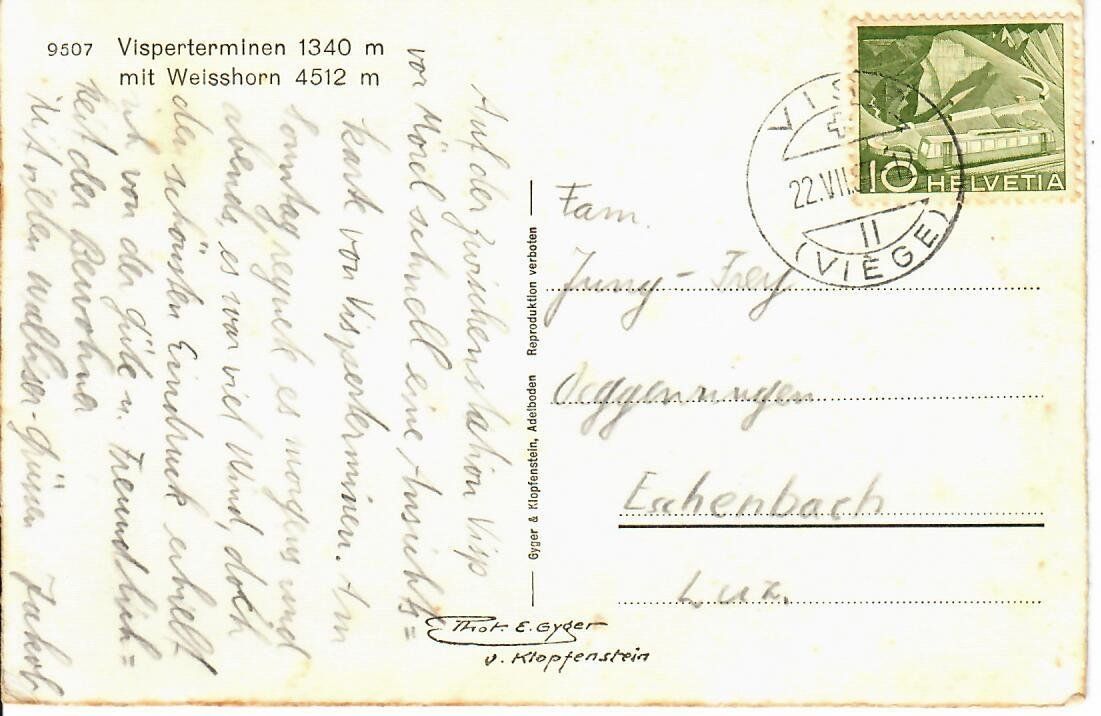 9507 Visperterminen 1340 m
mit Weisshorn 4512 m
Auf der Zwischenstation Visp
vor Mörel schnell eine Ansichts=
karte von Visperterminen. Am
Sonntag regnete es morgens und
abends, es war viel Wind, doch
den schönsten Eindruck erhielt
ich von der Güte u. Freundlich=
keit der Bewohner
Mit vielen Walliser-Grüssen
Gyger & Klopfenstein, Adelboden Reproduktion verboten
Phot. E. Gyger
v. Klopfenstein
10 HELVETIA
VISP
22.VII.5
II
(VIÈGE)
Fam.
Jung - Frey
Oeggenringen
Eschenbach
Luz.